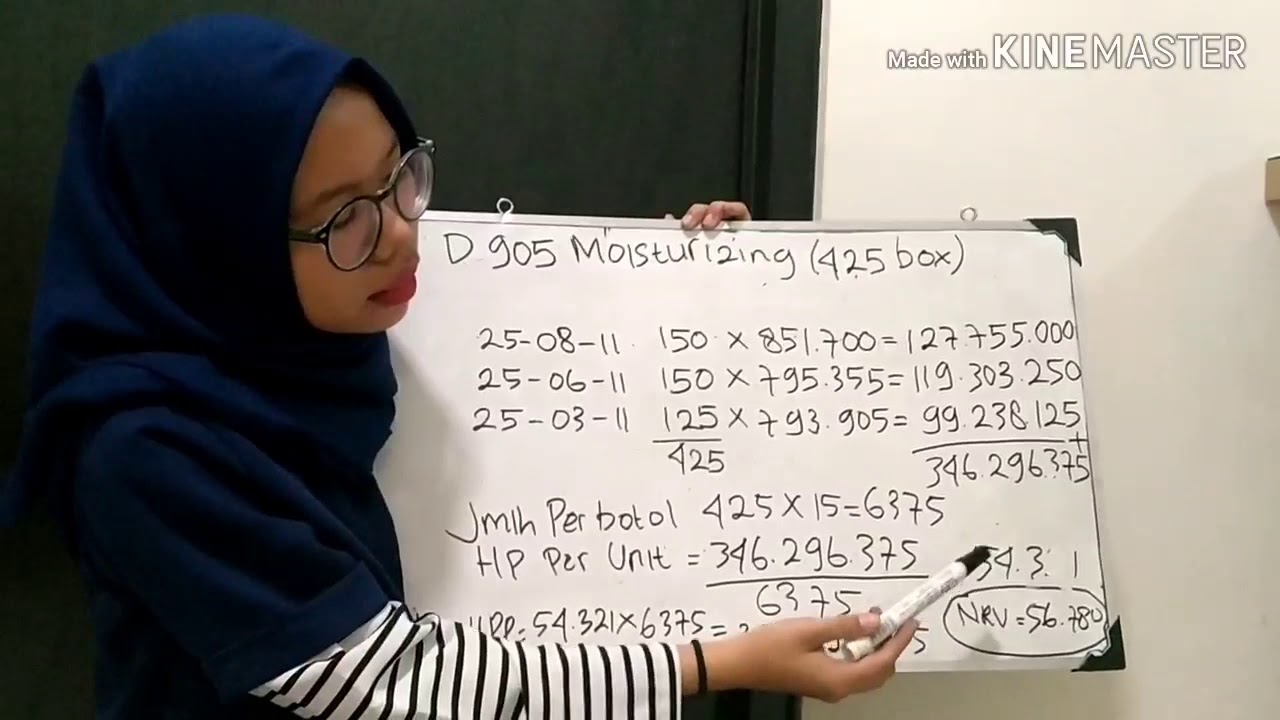 Made with KINEMASTER
D 905 Moisturizing (425 box)
25-08-11 150 × 851.700 = 127.755.000
25-06-11 150 × 795.355 = 119.303.250
25-03-11 125 × 793.905 = 99.238.125 +
425 346.296.375
Jmlh Per botol 425 × 15 = 6375
HP Per Unit = 346.296.375
6375
NRV = 56.780
54.321 × 6375 =